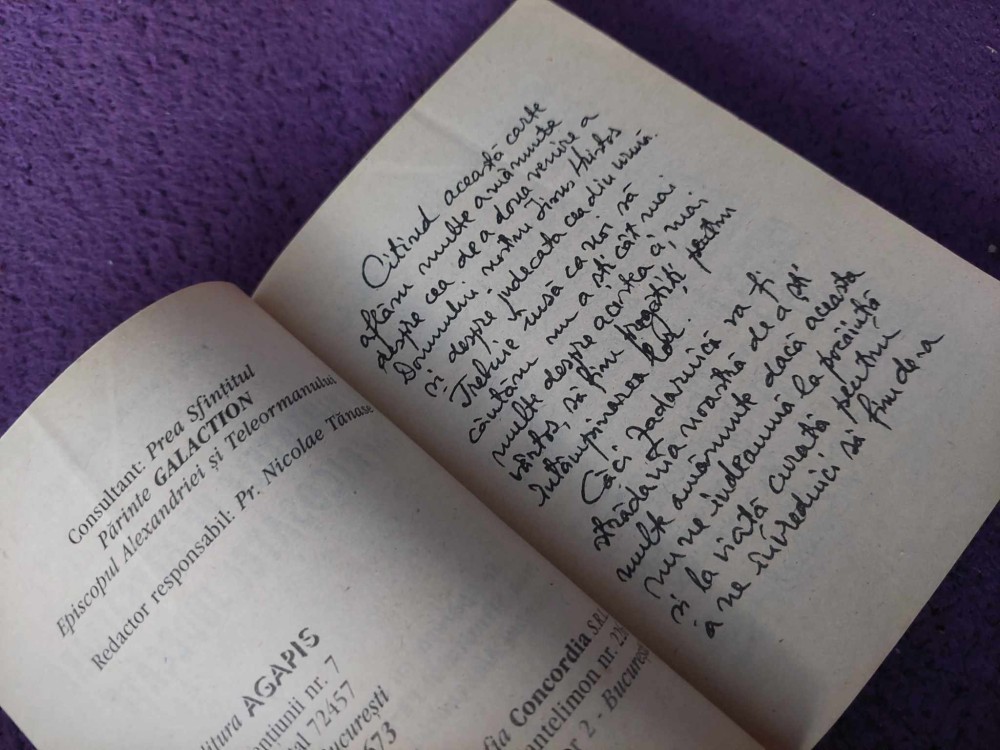 Consultant: Prea Sfințitul
Părinte GALACTION
Episcopul Alexandriei și Teleormanului
Redactor responsabil: Pr. Nicolae Tănase
AGAPIS
nr. 7
72457
București
673
Concordia S.R.L.
nr.
2 - București
Citind această carte
aflăm multe amănunte
despre cea de a doua venire a
Domnului nostru Iisus Hristos
și despre judecata cea din urmă.
Trebuie însă ca noi să
căutăm nu a ști cât mai
multe despre acestea ci, mai
vârtos, să fim pregătiți pentru
întâmpinarea lor.
Căci zadarnică va fi
strădania noastră de a ști
multe amănunte dacă aceasta
nu ne îndeamnă la pocăință
și la viață curată pentru
a ne învrednici să fim de-a